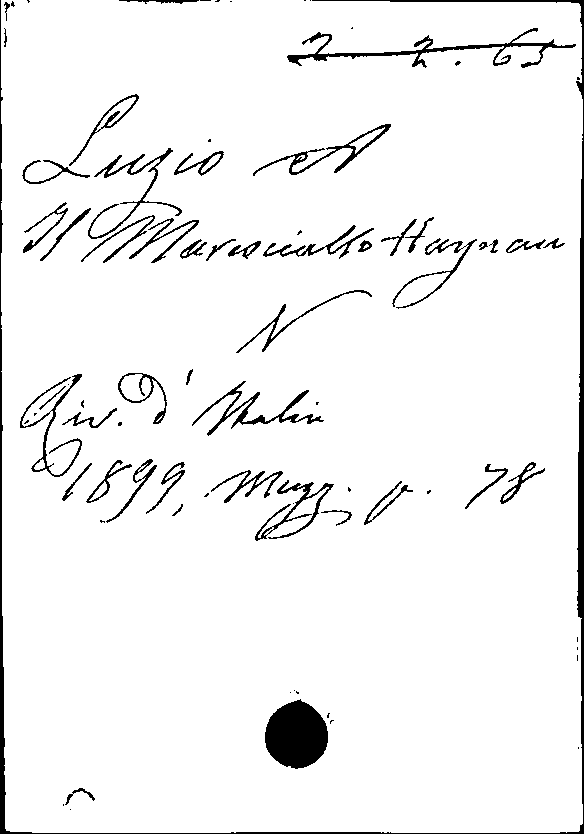 2 2. 65
Luzio A
Il Maresciallo Haynau
N
Riv. d' Italia
1899, p. 78